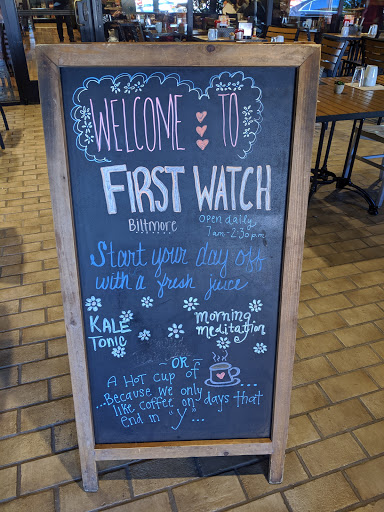 WELCOME TO
FIRST WATCH
Biltmore
open daily
7am-2:30pm
Start your day off
with a fresh juice
KALE
TONIC
morning
meditation
- OR -
A HOT CUP OF
...Because we only ...
like coffee on days that
end in "y"...